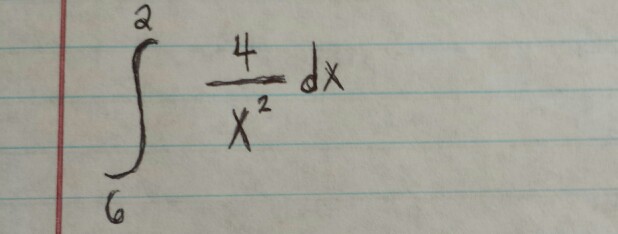 ∫₆² 4/x² dx